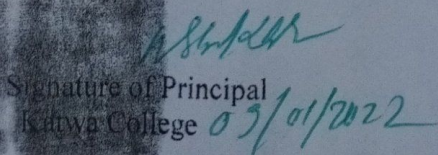 Signature of Principal
Katwa College 03/01/2022